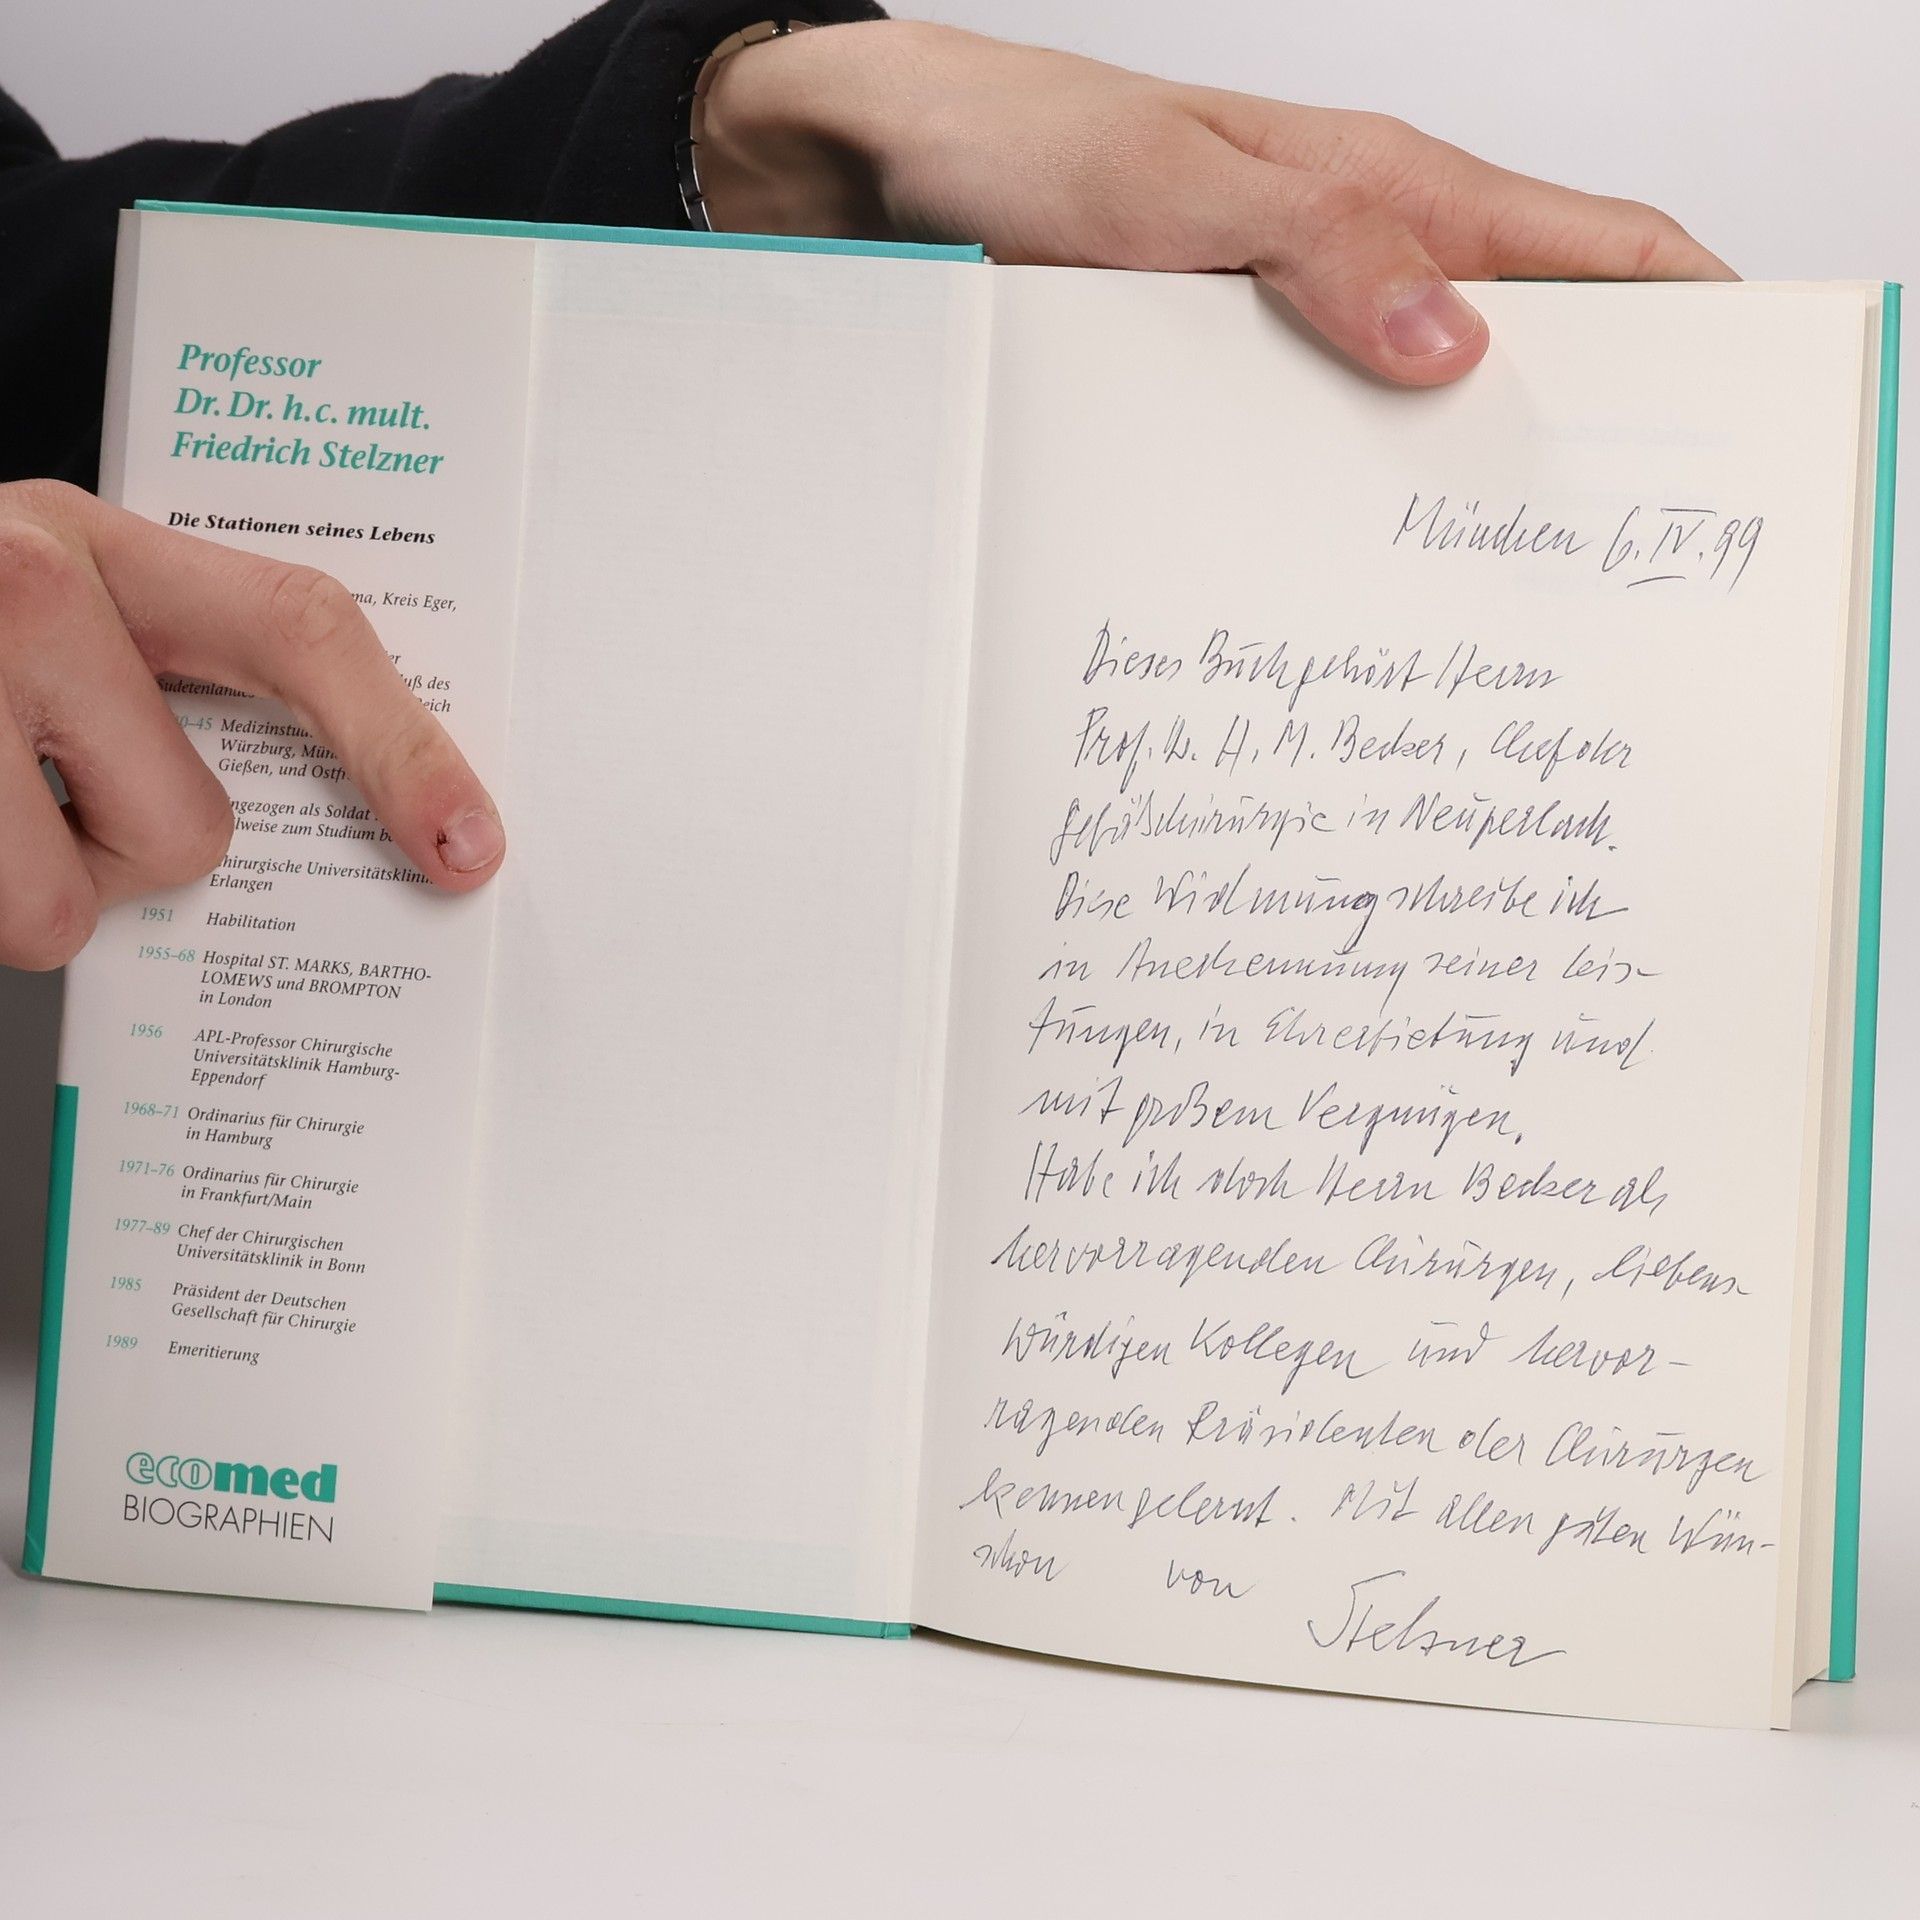 Professor
Dr. Dr. h.c. mult.
Friedrich Stelzner
Die Stationen seines Lebens
Kreis Eger,
des
Sudetenlandes
–45
Würzburg,
Gießen, und
als Soldat
zum Studium
Chirurgische
Erlangen
1951 Habilitation
1955–68 Hospital ST. MARKS, BARTHO-
LOMEWS und BROMPTON
in London
1956 APL-Professor Chirurgische
Universitätsklinik Hamburg-
Eppendorf
1968–71 Ordinarius für Chirurgie
in Hamburg
1971–76 Ordinarius für Chirurgie
in Frankfurt/Main
1977–89 Chef der Chirurgischen
Universitätsklinik in Bonn
1985 Präsident der Deutschen
Gesellschaft für Chirurgie
1989 Emeritierung
ecomed
BIOGRAPHIEN
München 6.IV.99
Dieses Buch gehört Herrn
Prof. Dr. H. M. Becker, Chef der
Gefäßchirurgie in Neuperlach.
Diese Widmung schreibe ich
in Anerkennung seiner Leis-
tungen, in Ehrerbietung und
mit großem Vergnügen.
Habe ich doch Herrn Becker als
hervorragenden Chirurgen, liebens-
würdigen Kollegen und hervor-
ragenden Präsidenten der Chirurgen
kennengelernt. Mit allen guten Wün-
schen von
Stelzner